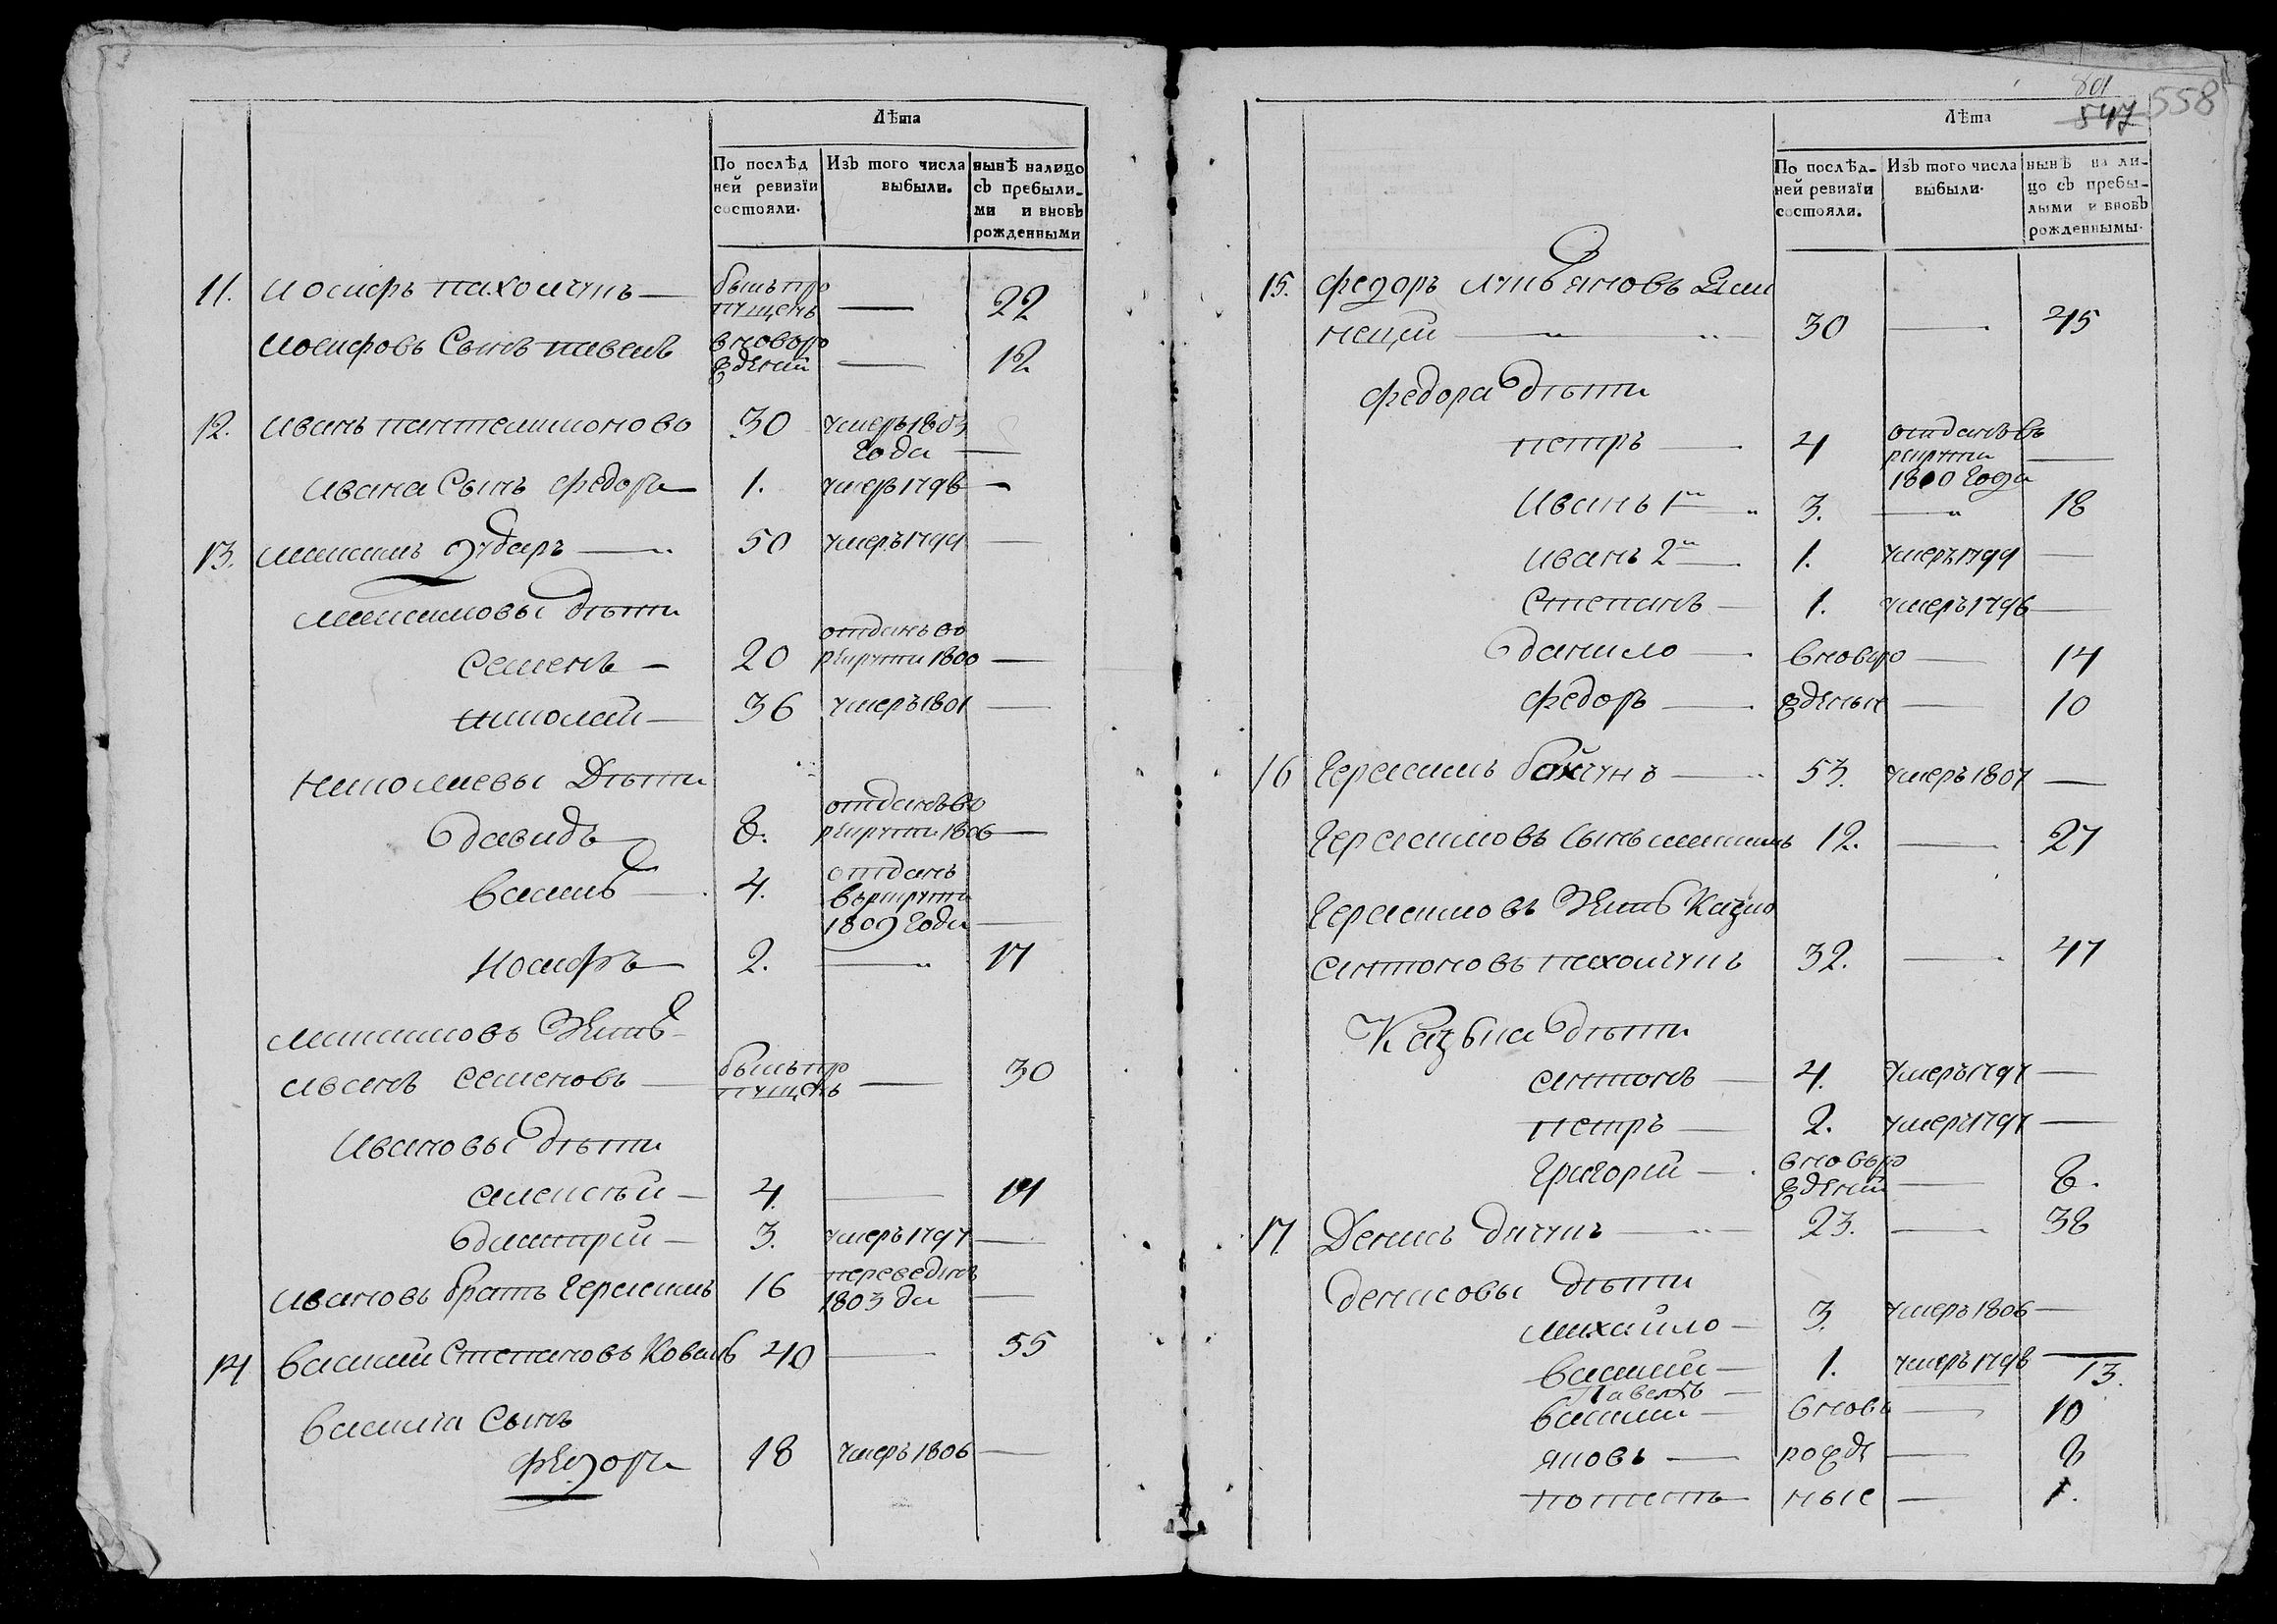 Лѣта
По послѣд
ней ревизїи
состояли.
Изъ того числа
выбыли.
нынѣ налицо
съ пребыли-
ми и вновь
рожденными
11. Иосифъ
былъ про
пущенъ — 22
Иосифовъ Сынъ павелъ
вновьро
жденый — 12
12. Иванъ пантелимоновъ 30 умеръ 1803
Года —
Ивана Сынъ федоръ 1. умеръ 1798 —
13. максимъ 50 умеръ 1799 —
максимовы дѣти
Семенъ — 20 отданъ во
рекруты 1800 —
николай — 36 умеръ 1801 —
николаевы Дѣти
давидъ 8. отданъ во
рекруты 1806 —
василь — 4. отданъ
въ рекруты
1809 Года —
Иосифъ 2. — 17
максимовъ Зять
иванъ семеновъ —
былъ про
пущенъ — 30
Ивановы дѣти
алексѣй — 4. — 19
дмитрий — 3. умеръ 1797 —
Ивановъ братъ герасимъ 16 переведенъ
1803 —
14 василий Степановъ Коваль 40 — 55
василия Сынъ
федоръ 18 умеръ 1806 —
801
547 558
Лѣта
По послѣд-
ней ревизїи
состояли.
Изъ того числа
выбыли.
нынѣ на ли-
цо съ пребы-
лыми и вновь
рожденными.
15. федоръ
30 — 45
федора дѣти
петръ — 4 отданъ въ
рекруты
1810 Года —
Иванъ 1й 3. — 18
иванъ 2й 1. умеръ 1799 —
Степанъ — 1. умеръ 1796 —
данило — вновьро — 14
федоръ — жденые — 10
16 Герасимъ — 53. умеръ 1807 —
Герасимовъ сынъ максимъ 12. — 27
Герасимовъ Зять Кузма
антоновъ 32. — 47
Кузьма дѣти
антонъ — 4. умеръ 1797 —
петръ — 2. умеръ 1797 —
григорий —
вновьро
жденый — 8.
17. Денисъ — 23. — 38
денисовы дѣти
михайло — 3. умеръ 1806 —
василий — 1. умеръ 1798 —
Павелъ — 13.
василий — вновь — 10
яковъ — рожде — 8
ные — 1.